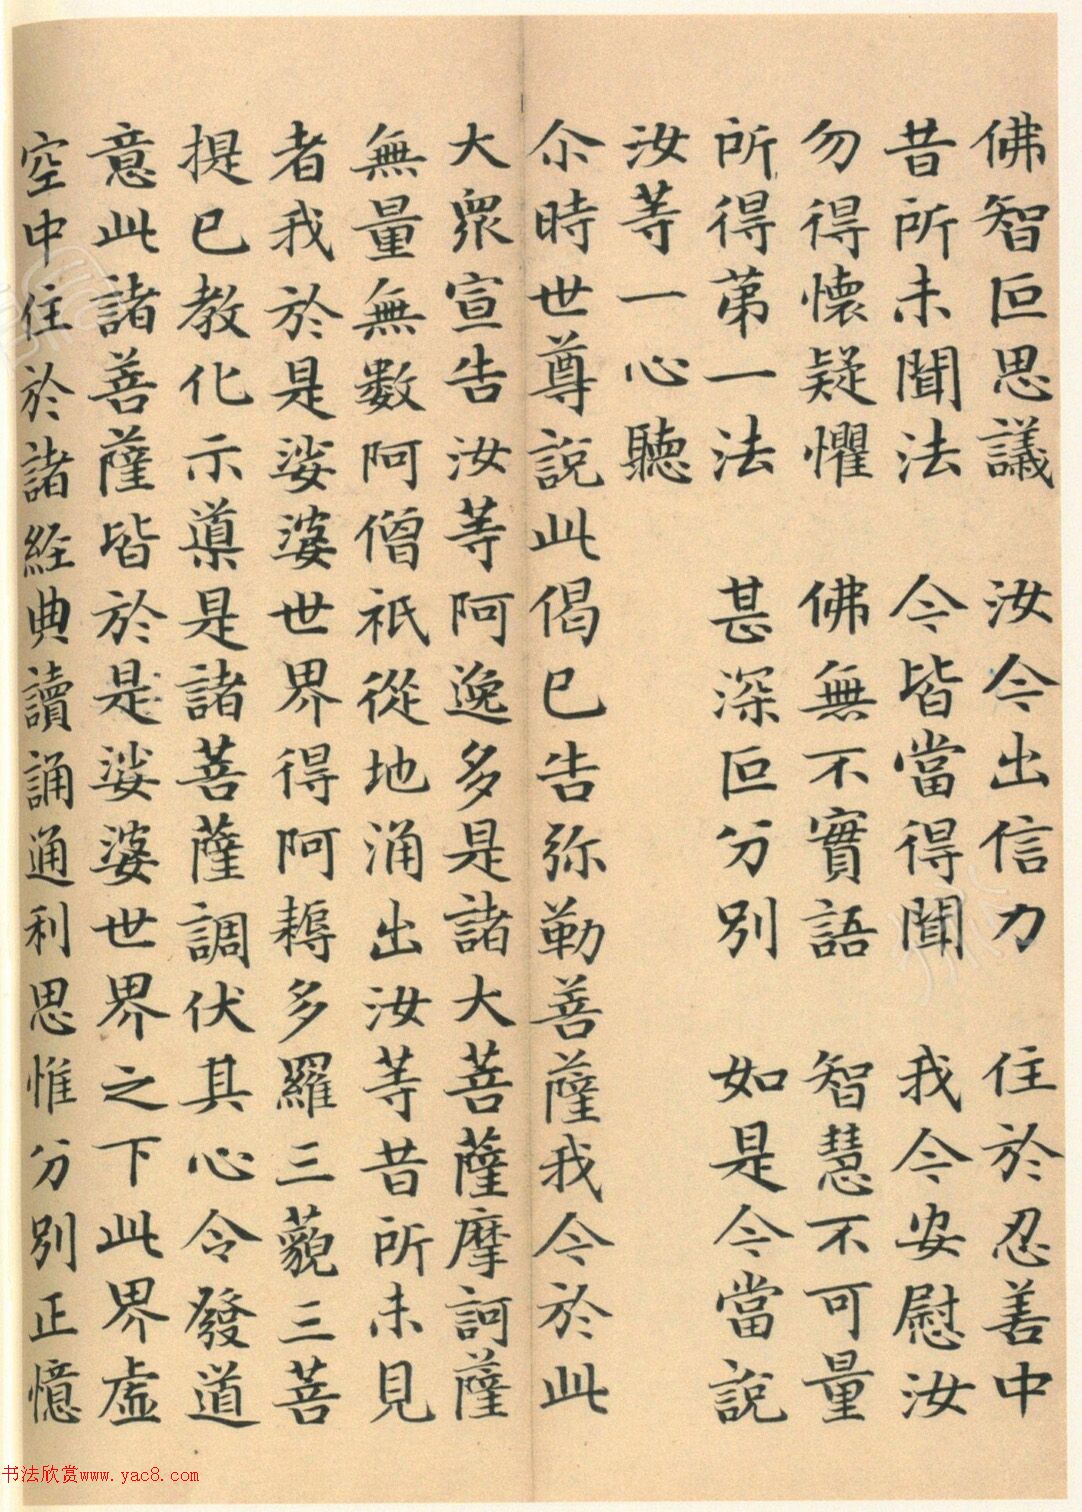 佛智叵思議　汝今出信力　住於忍善中
昔所未聞法　今皆當得聞　我今安慰汝
勿得懷疑懼　佛無不實語　智慧不可量
所得苐一法　甚深叵分別　如是今當說
汝等一心聽
尒時世尊說此偈已告弥勒菩薩我今於此
大眾宣告汝等阿逸多是諸大菩薩摩訶薩
無量無數阿僧祇從地涌出汝等昔所未見
者我於是娑婆世界得阿耨多羅三藐三菩
提已教化示導是諸菩薩調伏其心令發道
意此諸菩薩皆於是娑婆世界之下此界虛
空中住於諸經典讀誦通利思惟分別正憶
书法欣赏www.yac8.com